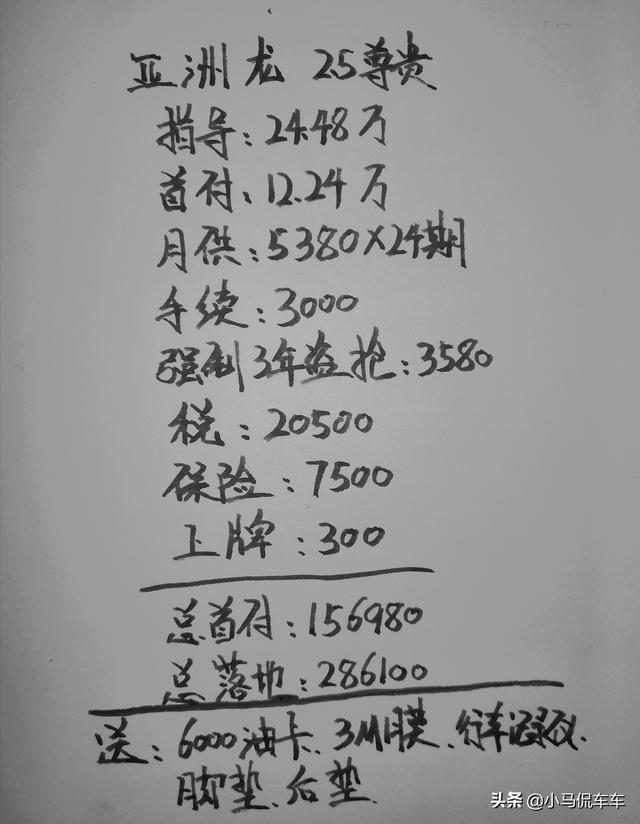 亚洲龙 2.5尊贵
指导:24.48万
首付:12.24万
月供:5380×24期
手续:3000
强制3年盗抢:3580
税:20500
保险:7500
上牌:300
总首付:156980
总落地:286100
送:6000油卡、3M膜、行车记录仪、
脚垫、后垫
头条 @小马侃车车